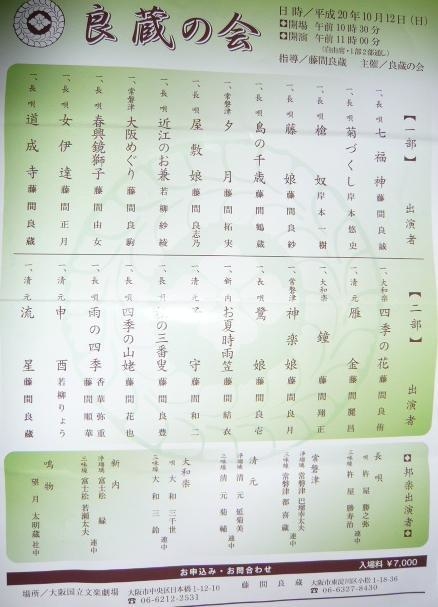 良蔵の会
日時／平成20年10月12日（日）
開場 午前10時30分
開演 午前11時00分
（自由席・1部2部通し）
指導／藤間良蔵 主催／良蔵の会
【一部】 出演者
一、長唄 七福神 藤間良誠
一、長唄 菊づくし 岸本悠史
一、長唄 槍奴 岸本一樹
一、長唄 藤娘 藤間良紗
一、長唄 島の千歳 藤間鶴蔵
一、常磐津 夕月 藤間拓実
一、長唄 屋敷娘 藤間良志乃
一、長唄 近江のお兼 若柳紗綾
一、常磐津 大阪めぐり 藤間良駒
一、長唄 春興鏡獅子 藤間由女
一、長唄 女伊達 藤間正月
一、長唄 道成寺 藤間良蔵
【二部】 出演者
一、大和楽 四季の花 藤間良侑
一、清元 雁金 藤間麗昌
一、大和楽 鐘 藤間翔正
一、常磐津 神楽娘 藤間良月
一、長唄 鷺娘 藤間良壱
一、新内 お夏時雨笠 藤間結衣
一、清元 子守 藤間和二
一、長唄 の三番叟 藤間良豊
一、長唄 四季の山姥 藤間花也
一、長唄 雨の四季 香華弥重 藤間順華
一、清元 申酉 若柳りょう
一、清元 流星 藤間良蔵
邦楽出演者
長唄
唄 杵屋勝之弥
三味線 杵屋勝寿治 連中
常磐津
浄瑠璃 常磐津巴瑠幸太夫
三味線 常磐津都喜蔵 連中
清元
浄瑠璃 清元延菊美
三味線 清元菊輔 連中
大和楽
唄 大和三千世
三味線 大和三鈴 連中
新内
浄瑠璃 富士松緑
三味線 富士松若瀬太夫 連中
鳴物
望月太明蔵社中
入場料 ¥7,000
お申込み・お問合わせ
場所／大阪国立文楽劇場 大阪市中央区日本橋1-12-10
☎06-6212-2531
藤間良蔵 大阪市東淀川区小松1-18-36
☎06-6327-8430